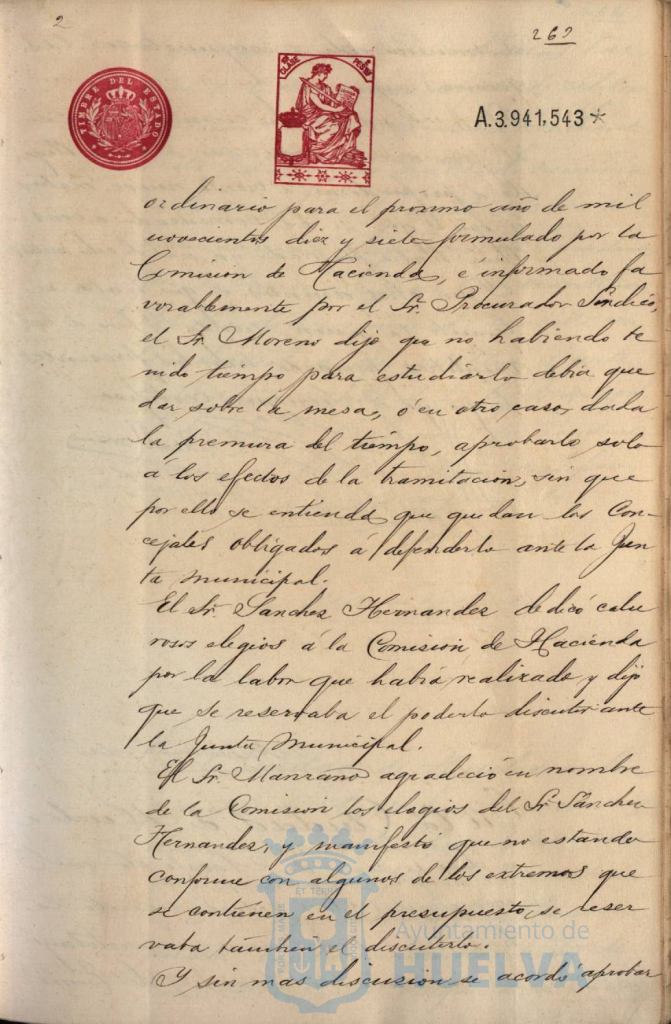 2
269
TIMBRE DEL ESTADO
CLASE PESETA
A.3.941.543*
ordinario para el proximo año de mil
novecientos diez y siete formulado por la
Comision de Hacienda, é informado fa
vorablemente por el Sr. Procurador Sindico,
el Sr. Moreno dijo que no habiendo te
nido tiempo para estudiarlo debia que
dar sobre la mesa, ó en otro caso, dada
la premura del tiempo, aprobarlo solo
á los efectos de la tramitacion, sin que
por ello se entienda que quedan los Con-
cejales obligados á defenderlo ante la Jun
ta municipal.
El Sr. Sanchez Hernandez dedicó calu
rosos elogios á la Comision de Hacienda
por la labor que habia realizado y dijo
que se reservaba el poderlo discutir ante
la Junta Municipal.
El Sr. Manzano agradeció en nombre
de la Comision los elogios del Sr. Sánchez
Hernandez, y manifestó que no estando
conforme con algunos de los extremos que
se contienen en el presupuesto, se reser
vaba tambien el discutirlo.
Y sin mas discusion se acordó aprobar
Ayuntamiento de
HUELVA